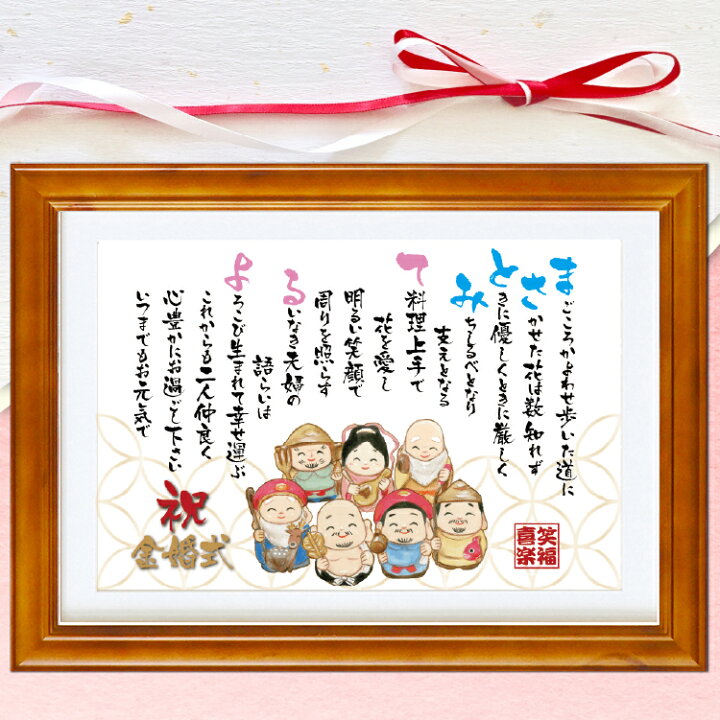 まごころかよわせ歩いた道に
さかせた花は数知れず
ときに優しくときに厳しく
みちしるべとなり
支えとなる
て料理上手で
花を愛し
明るい笑顔で
周りを照らす
るいなき夫婦の
語らいは
よろこび生まれて幸せ運ぶ
これからも二人仲良く
心豊かにお過ごし下さい
いつまでもお元気で
祝
金婚式
笑福
喜楽